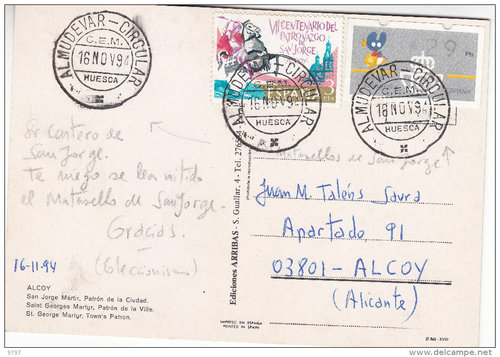 ALMUDEVAR-CIRCULAR
C.E.M.
16 NOV 94
HUESCA
VII CENTENARIO DEL
PATRONAZGO
DE
SAN JORGE
ALCOY
ESPAÑA
ALMUDEVAR-CIRCULAR
C.E.M.
16 NOV 94
HUESCA
Pts
ESPAÑA
ALMUDEVAR-CIRCULAR
C.E.M.
16 NOV 94
HUESCA
Sr Cartero de
San Jorge.
Te ruego se lea nítido
el Matasello de San Jorge.
Gracias.
(Coleccionismo)
16-11-94
ALCOY
San Jorge Mártir, Patrón de la Ciudad.
Saint Georges Martyr, Patrón de la Ville.
St. George Martyr, Town's Patron.
Ediciones ARRIBAS - S. Guallar, 4 - Tel.
Matasellos de San Jorge
Juan M. Taléns Saura
Apartado, 91
03801 - ALCOY
(Alicante)
IMPRESO EN ESPAÑA
PRINTED IN SPAIN
9797
delcampe.net